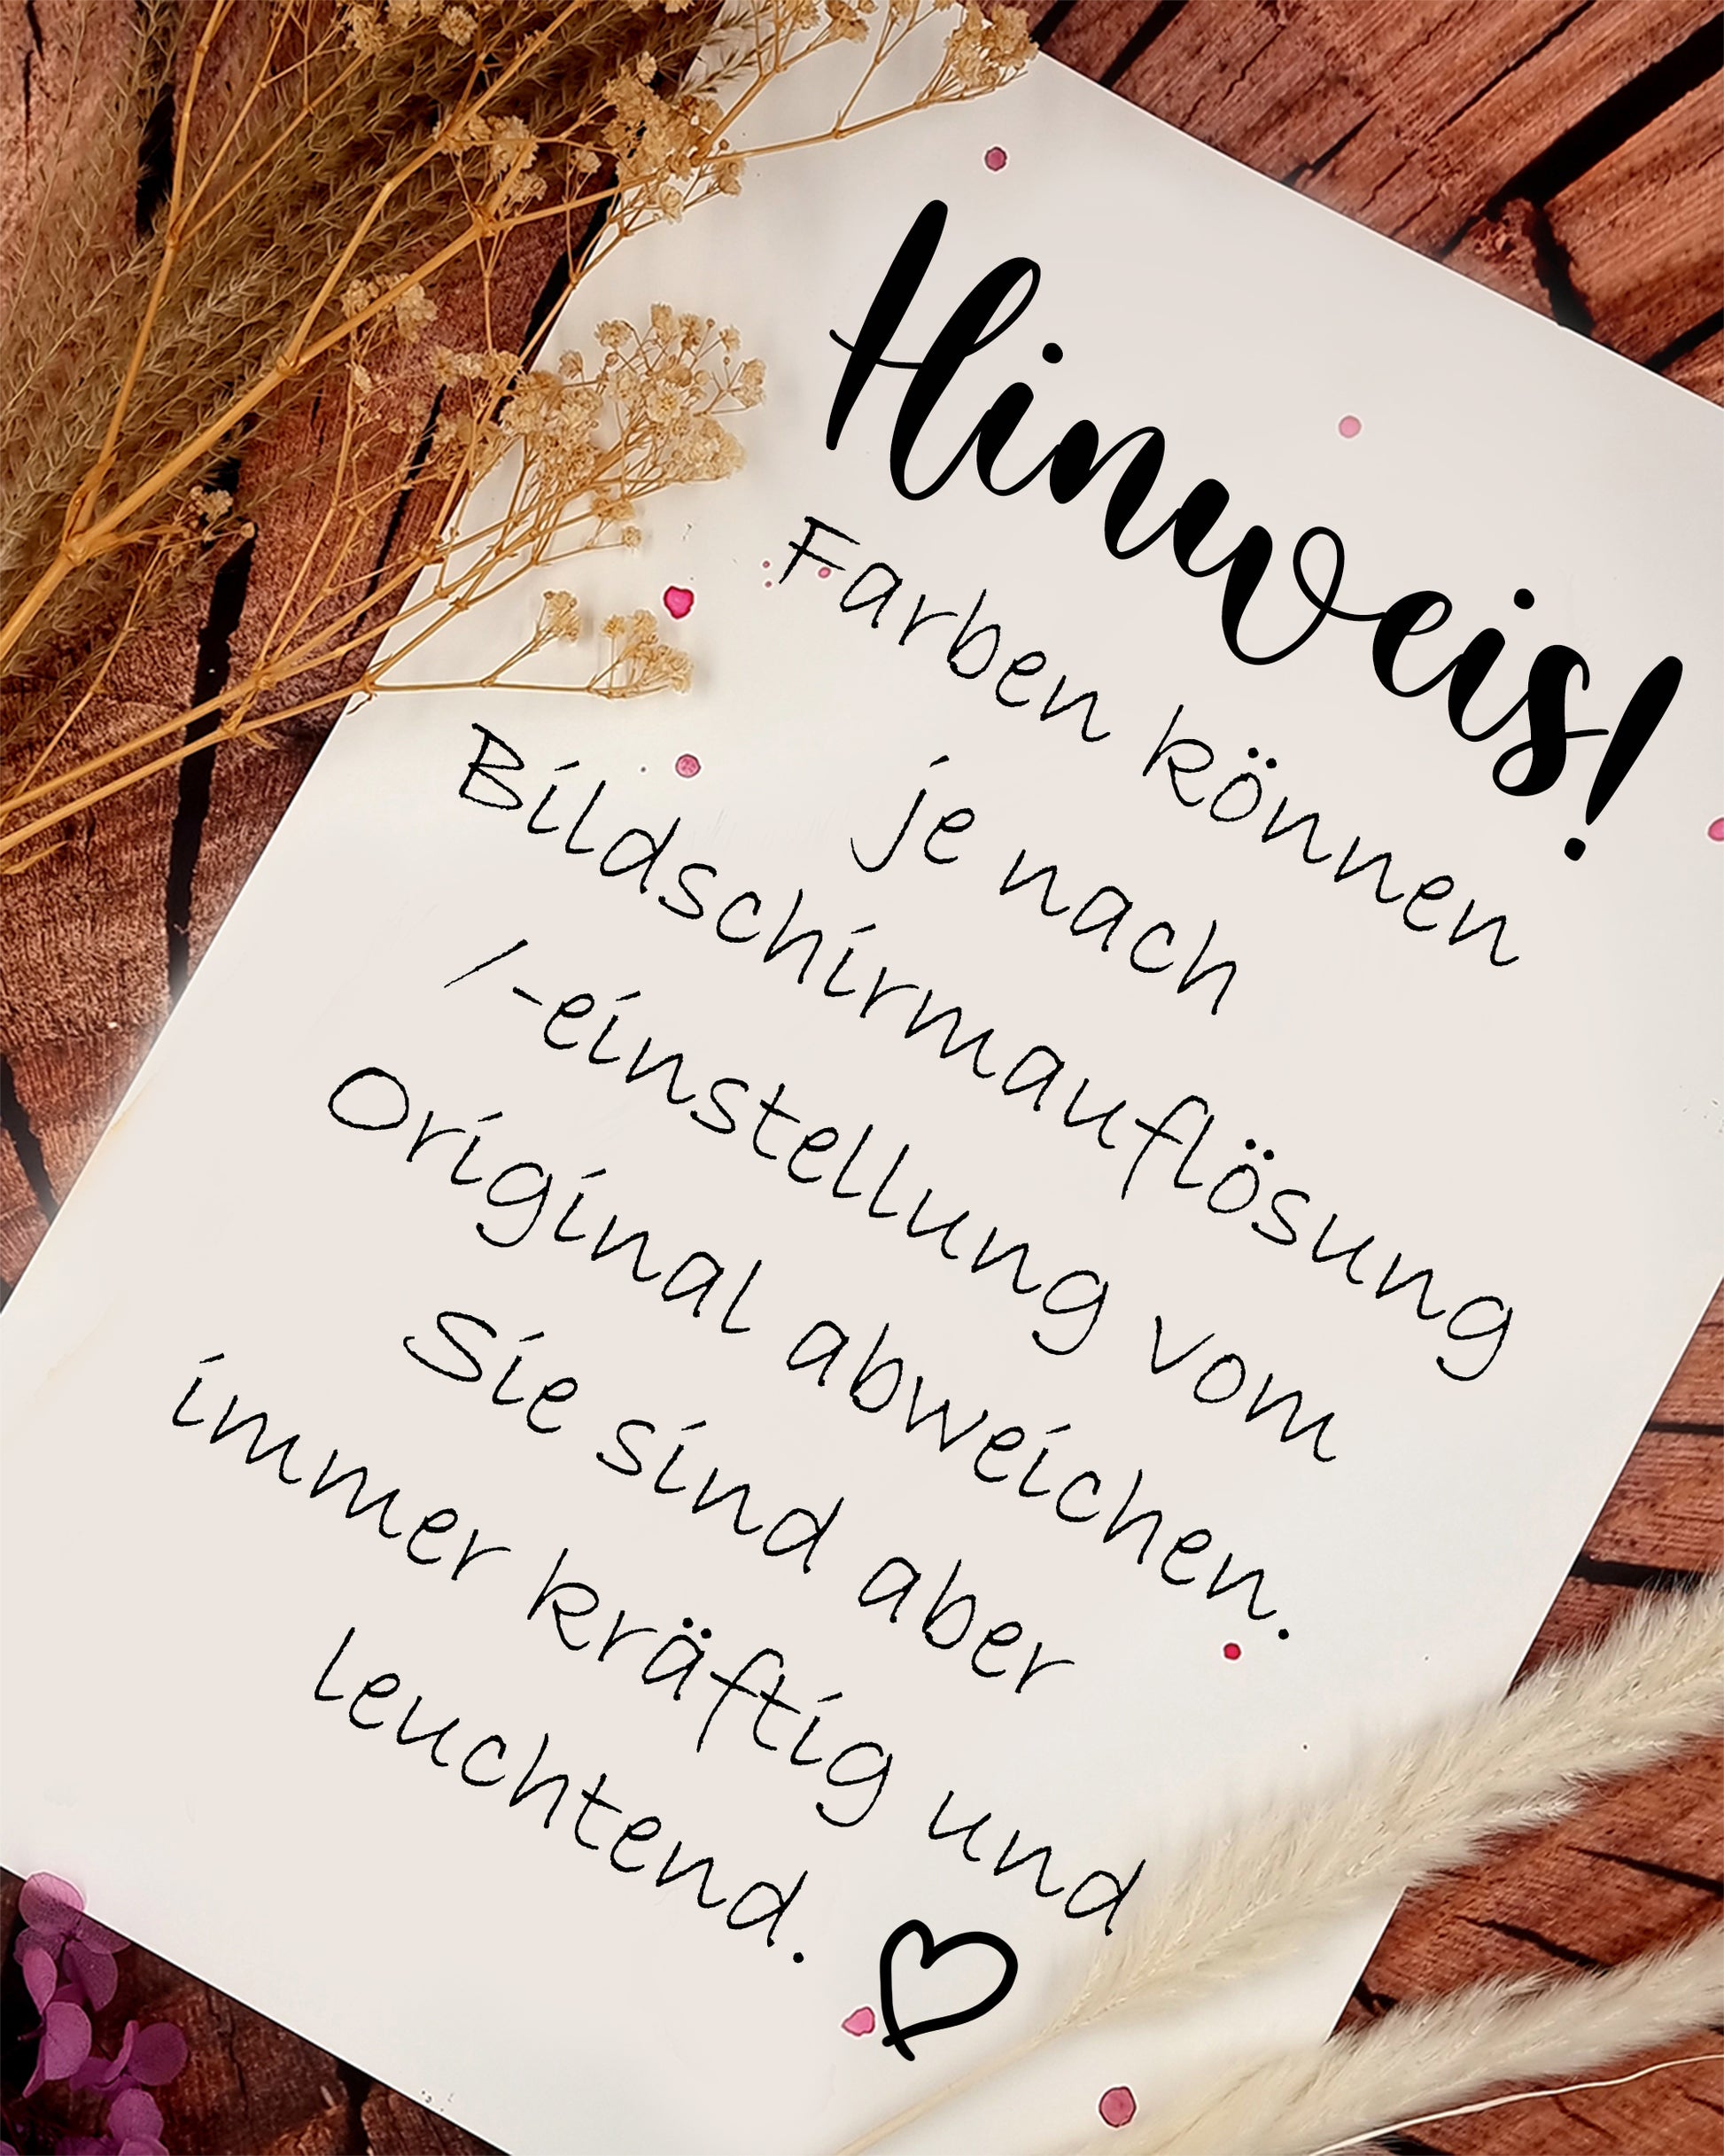 Hinweis!
Farben können
je nach
Bildschirmauflösung
/-einstellung vom
Original abweichen.
Sie sind aber
immer kräftig und
leuchtend.